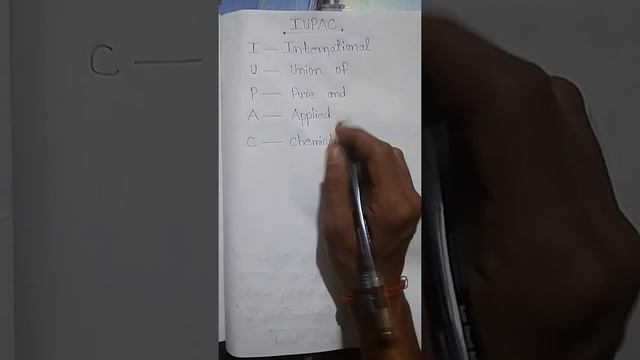 IUPAC
I — International
U — Union of
P — Pure and
A — Applied
C — Chemist